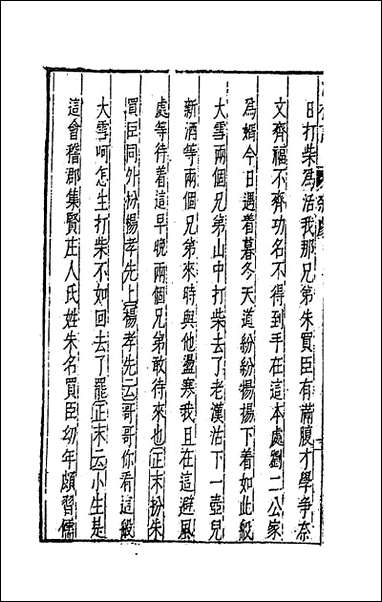 日打柴爲活我那兄弟朱買臣有滿腹才學爭奈
文齊福不齊功名不得到手在這本處劉二公家
爲婿今日遇着暮冬天道紛紛揚揚下着如此般
大雪兩個兄弟山中打柴去了老漢沽下一壺兒
新酒等兩個兄弟來時與他盪寒我且在這避風
處等待着這早晚兩個兄弟敢待來也正末扮朱
買臣同外扮楊孝先上楊孝先云哥哥你看這般
大雪呵怎生打柴不如回去了罷正末云小生是
這會稽郡集賢庄人氏姓朱名買臣幼年頗習儒